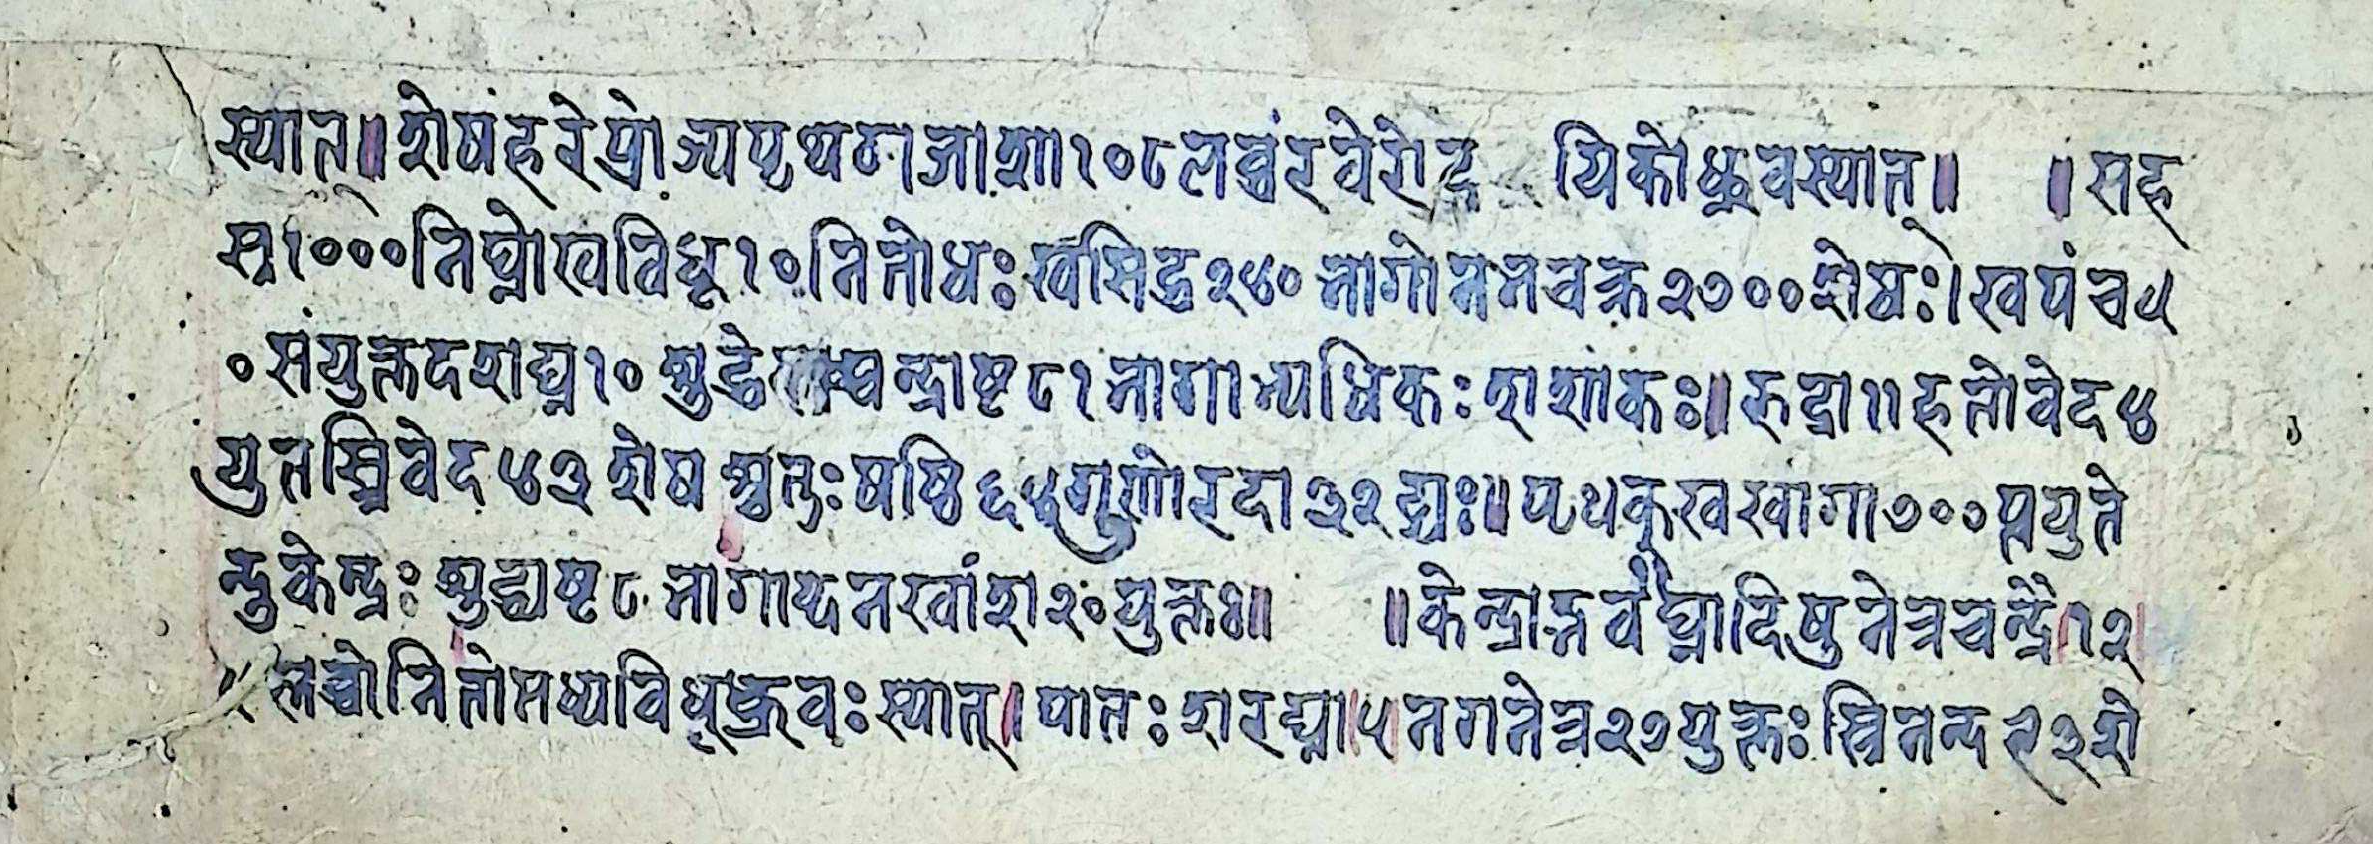 स्यात्॥शेषंहरेप्रोज्यपृथगजाशा१०८लब्धंरवेरोद यिकोध्रुवस्यात्॥ ॥सह
स्र१०००निघ्नोखविधू१०नितोधःखसिद्ध२४०नागोनन चक्र२७००शेषः।खपंच५
०संयुक्तदशघ्न१०शुद्धे चन्द्राष्ट८१नागाभ्यधिकःशशांकः॥रुद्रा११हतोवेद४
युतस्त्रिवेद४३शेषश्चतुःषष्ठि६४गुणोरदा३२ढ्यः॥पृथक्खखागा७००प्तयुते
न्दुकेन्द्रःशुद्ध्यष्ट८नागाप्थनखांश२०युक्तः॥ ॥केन्द्राद्भवैघ्नादिषुनेत्रचन्द्रै१२
५लब्धोनितोमध्यविधूध्रुवःस्यात्।पातःशरघ्ना५नगनेत्र२७युक्तःस्त्रिनन्द९३शे